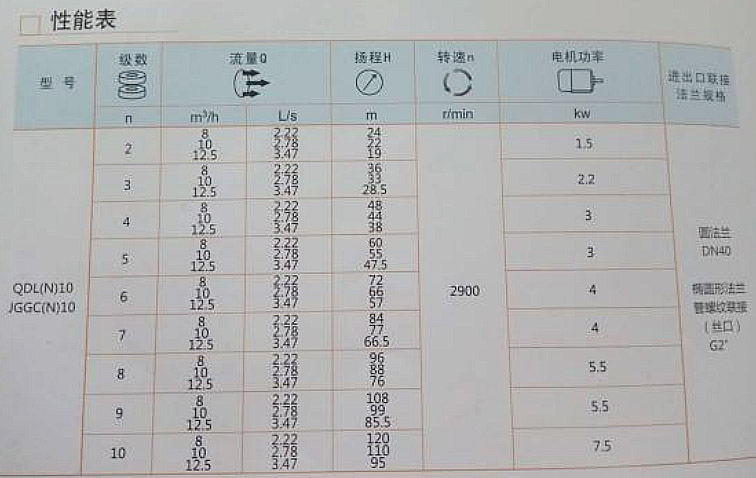 性能表
型 号
级数
流量Q
扬程H
转速n
电机功率
进出口联接
法兰规格
n
m³/h
L/s
m
r/min
kw
QDL(N)10
JGGC(N)10
2900
圆法兰
DN40
椭圆形法兰
管螺纹联接
(丝口)
G2"
2
8 2.22 24
10 2.78 22
12.5 3.47 19
1.5
3
8 2.22 36
10 2.78 33
12.5 3.47 28.5
2.2
4
8 2.22 48
10 2.78 44
12.5 3.47 38
3
5
8 2.22 60
10 2.78 55
12.5 3.47 47.5
3
6
8 2.22 72
10 2.78 66
12.5 3.47 57
4
7
8 2.22 84
10 2.78 77
12.5 3.47 66.5
4
8
8 2.22 96
10 2.78 88
12.5 3.47 76
5.5
9
8 2.22 108
10 2.78 99
12.5 3.47 85.5
5.5
10
8 2.22 120
10 2.78 110
12.5 3.47 95
7.5